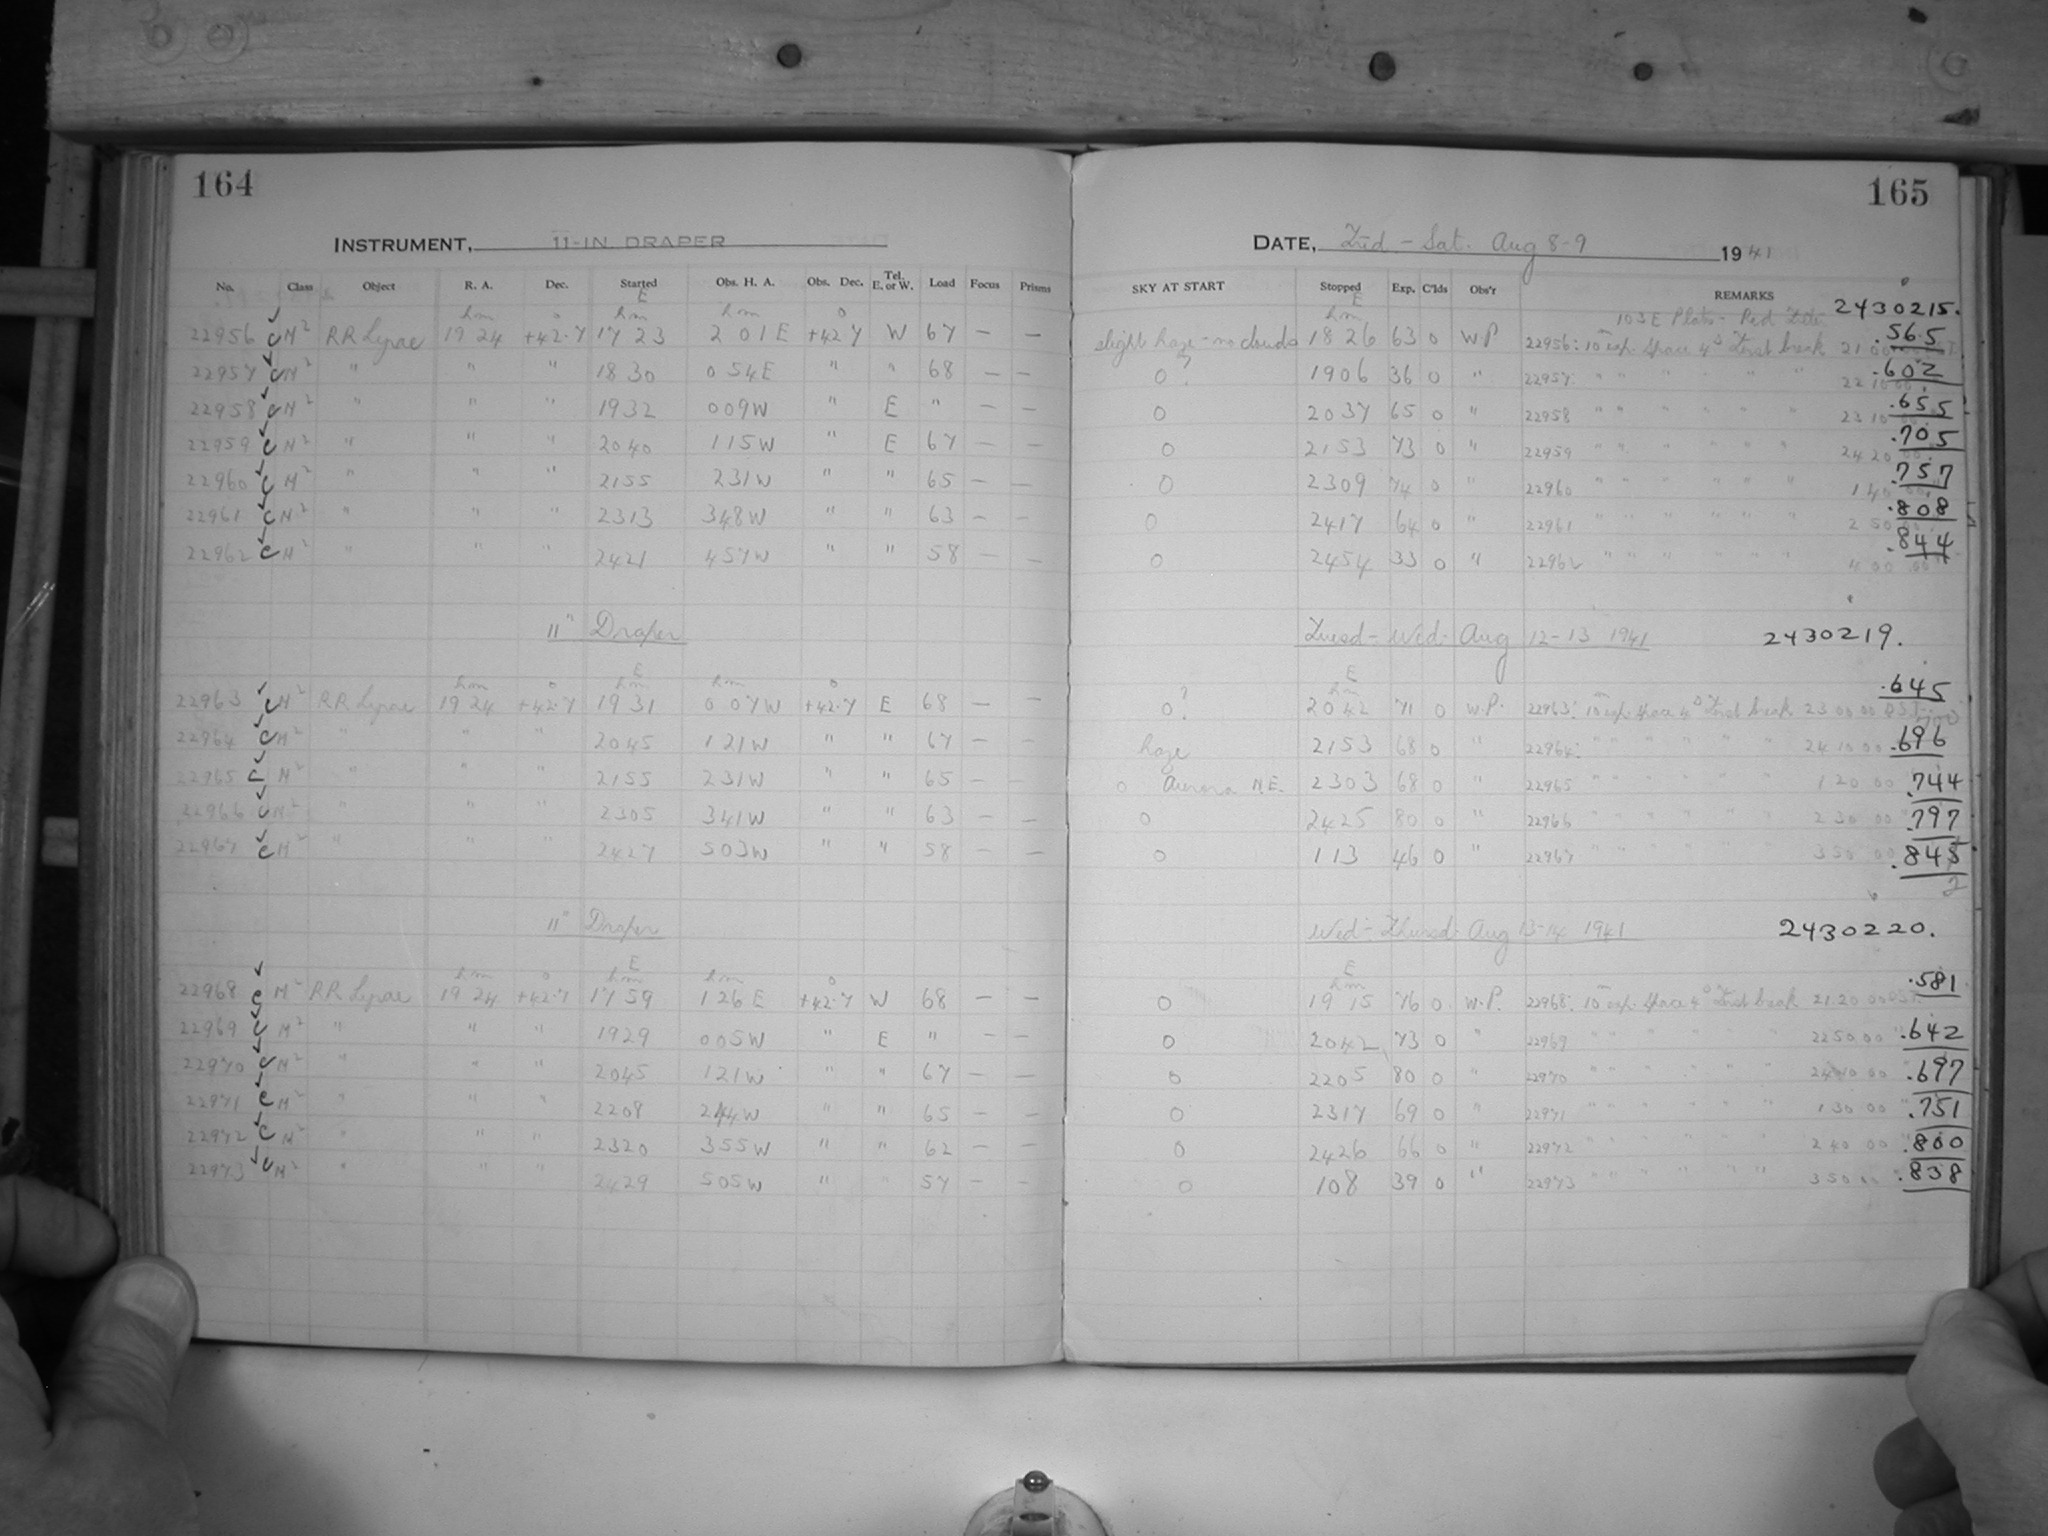 164
INSTRUMENT, 11-IN. DRAPER
No. Class Object R. A. Dec. Started Obs. H. A. Obs. Dec. Tel. E. or W. Load Focus Prisms
E
h m o h m h m o
22956 C M² RR Lyrae 19 24 +42.7 17 23 2 01 E +42.7 W 67 — —
22957 C M² " " " 18 30 0 54 E " " 68 — —
22958 C M² " " " 19 32 0 09 W " E " — —
22959 C M² " " " 20 40 1 15 W " E 67 — —
22960 C M² " " " 21 55 2 31 W " " 65 — —
22961 C M² " " " 23 13 3 48 W " " 63 — —
22962 C M² " " " 24 21 4 57 W " " 58 — —
11" Draper
E
h m o h m h m o
22963 C M² RR Lyrae 19 24 +42.7 19 31 0 07 W +42.7 E 68 — —
22964 C M² " " " 20 45 1 21 W " " 67 — —
22965 C M² " " " 21 55 2 31 W " " 65 — —
22966 C M² " " " 23 05 3 41 W " " 63 — —
22967 C M² " " " 24 27 5 03 W " " 58 — —
11" Draper
E
h m o h m h m o
22968 C M² RR Lyrae 19 24 +42.7 17 59 1 26 E +42.7 W 68 — —
22969 C M² " " " 19 29 0 05 W " E " — —
22970 C M² " " " 20 45 1 21 W " " 67 — —
22971 C M² " " " 22 08 2 44 W " " 65 — —
22972 C M² " " " 23 20 3 55 W " " 62 — —
22973 C M² " " " 24 29 5 05 W " " 57 — —
165
DATE, Frid - Sat. Aug 8-9 1941
SKY AT START Stopped Exp. C'lds Obs'r REMARKS
E
h m 103E Plate - Red 2430215.
slight haze - no clouds 18 26 63 0 W.P 22956: 10 m exp. space 4 s First break 21 00 .565
0? 19 06 36 0 " 22957 " " " " " " 22 10 .602
0 20 37 65 0 " 22958 " " " " " " 23 10 .655
0 21 53 73 0 " 22959 " " " " " " 24 20 .705
0 23 09 74 0 " 22960 " " " " " " 1 40 .757
0 24 17 64 0 " 22961 " " " " " " 2 50 .808
0 24 54 33 0 " 22962 " " " " " " 4 00 .844
Tuesd - Wed - Aug 12-13 1941 2430219.
E
h m
0? 20 42 71 0 W.P. 22963: 10 m exp. space 4 s First break 23 00 00 .645
haze 21 53 68 0 " 22964: " " " " " " 24 10 00 .696
0 Aurora N.E. 23 03 68 0 " 22965 " " " " " " 1 20 00 .744
0 24 25 80 0 " 22966 " " " " " " 2 30 00 .797
0 1 13 46 0 " 22967 " " " " " " 3 50 00 .845
2
Wed - Thursd Aug 13-14 1941 2430220.
E
h m
0 19 15 76 0 W.P. 22968: 10 m exp. space 4 s First break 21 20 00 .581
0 20 42 73 0 " 22969 " " " " " " 22 50 00 .642
0 22 05 80 0 " 22970 " " " " " " 24 10 00 .697
0 23 17 69 0 " 22971 " " " " " " 1 30 00 .751
0 24 26 66 0 " 22972 " " " " " " 2 40 00 .800
0 1 08 39 0 " 22973 " " " " " " 3 50 .838